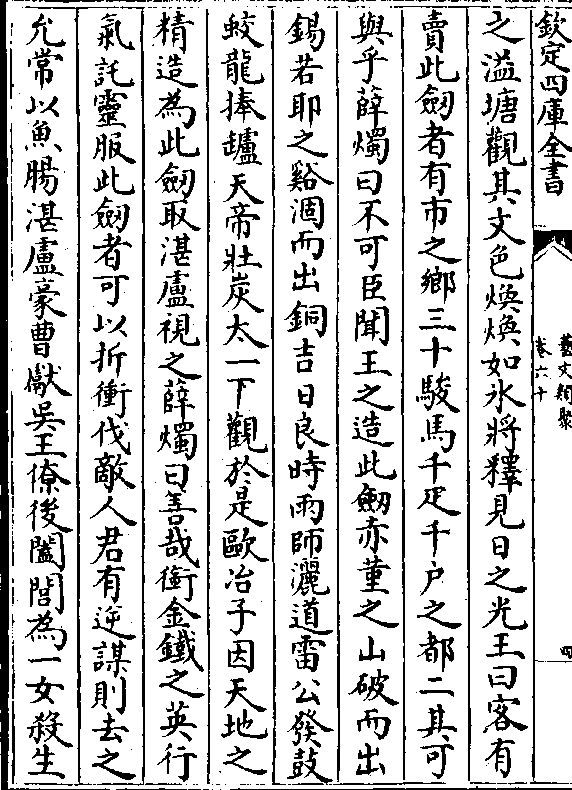 欽定四庫全書
藝文類聚
卷六十
四
之溢塘觀其文色煥煥如氷將釋見日之光王曰客有
賣此劒者有市之鄉三十駿馬千疋千户之都二其可
與乎薛燭曰不可臣聞王之造此劒赤堇之山破而出
錫若耶之谿涸而出銅吉日良時雨師灑道雷公發鼓
蛟龍捧罏天帝壯炭太一下觀於是歐冶子因天地之
精造為此劒取湛盧視之薛燭曰善哉銜金鐵之英行
氣託靈服此劒者可以折衝伐敵人君有逆謀則去之
允常以魚腸湛盧豪曹獻吳王僚後闔閭為一女殺生